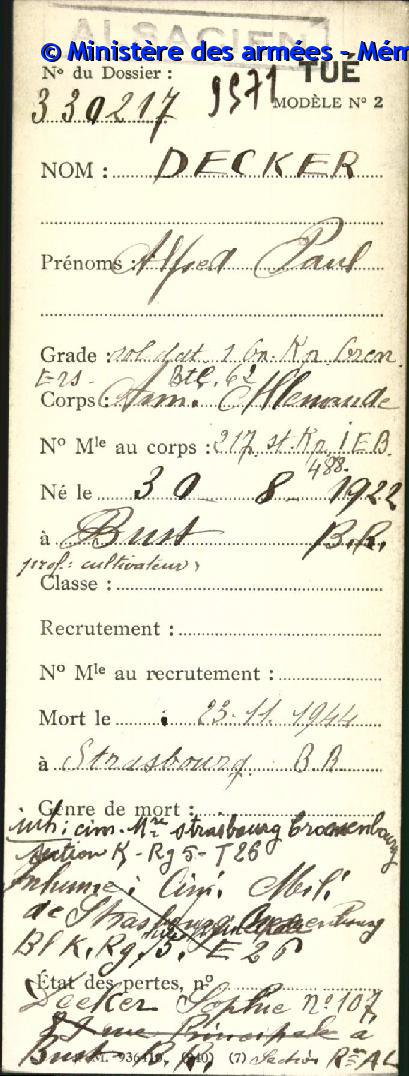 ALSACIEN
© Ministère des armées - Mém
N° du Dossier :
TUÉ
330217
9971
MODÈLE N° 2
NOM : DECKER
Prénoms : Alfred Paul
Grade : soldat 1 Gn. Kn Gren
Ers- Btl. 62
Corps : Arm. Allemande
N° Mle au corps : 217 st. Kn I E B
488.
Né le 30 - 8 - 1922
à Bust B.R.
prof: cultivateur,
Classe :
Recrutement :
N° Mle au recrutement :
Mort le 23.11.1944
à Strasbourg B R
Genre de mort :
inh: cim. Mre strasbourg Cronenbourg
section K - Rg 5 - T 26
Inhumé : Cim. Mil.
de Strasbourg Cronenbourg
Bl K. Rg. 5. E 26
État des pertes, n°
Decker Sophie n° 107
rue Principale à
Bust B.R. Section R=AL
M. (7)